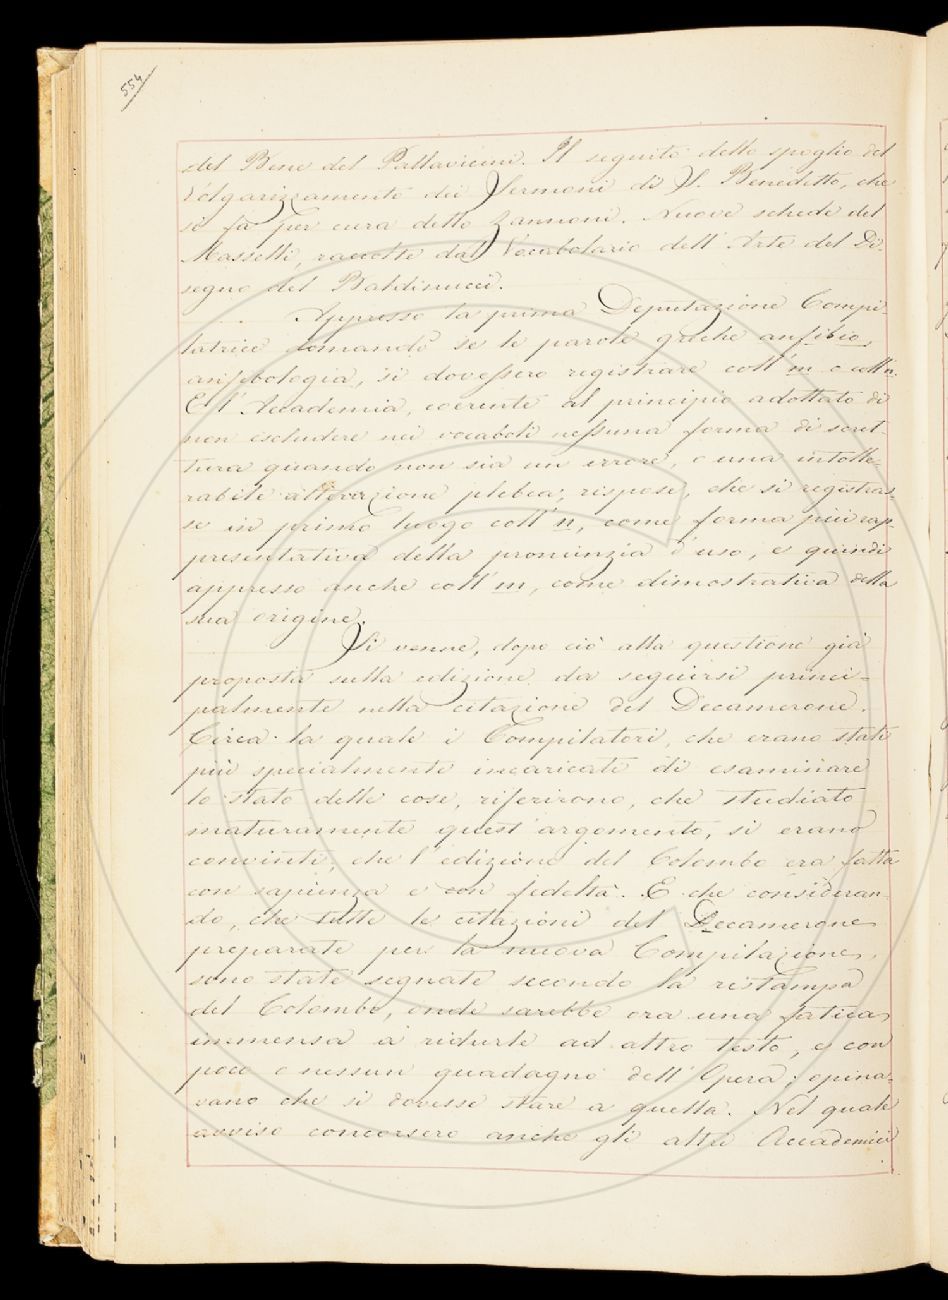 554
del Bene del Pallavicini. Il seguito dello spoglio del
Volgarizzamento dei Sermoni di S. Benedetto, che
si fa per cura dello Zannoni. Nuove schede del
Masselli, raccolte dal Vocabolario dell'Arte del Di-
segno del Baldinucci.
Appresso la prima Deputazione Compi-
latrice domandò se le parole greche anfibio,
anfibologia, si dovessero registrare coll'm o coll'n.
E l'Accademia, coerente al principio adottato di
non escludere nei vocaboli nessuna forma di scrit-
tura quando non sia un errore, o una intolle-
rabile alterazione plebea; rispose, che si registras-
se in primo luogo coll'n, come forma più rap-
presentativa della pronunzia d'uso, e quindi
appresso anche coll'm, come dimostrativa della
sua origine.
Si venne, dopo ciò alla questione già
proposta sulla edizione da seguirsi princi-
palmente nella citazione del Decamerone.
Circa la quale i Compilatori, che erano stati
più specialmente incaricati di esaminare
lo stato delle cose, riferirono, che studiato
maturamente quest'argomento, si erano
convinti, che l'edizione del Colombo era fatta
con sapienza e con fedeltà. E che consideran-
do, che tutte le citazioni del Decamerone
preparate per la nuova Compilazione,
sono state segnate secondo la ristampa
del Colombo, onde sarebbe ora una fatica
immensa a ridurle ad altro testo, e con
poco o nessun guadagno dell'Opera; opina-
vano che si dovesse stare a quella. Nel quale
avviso concorsero anche gli altri Accademici